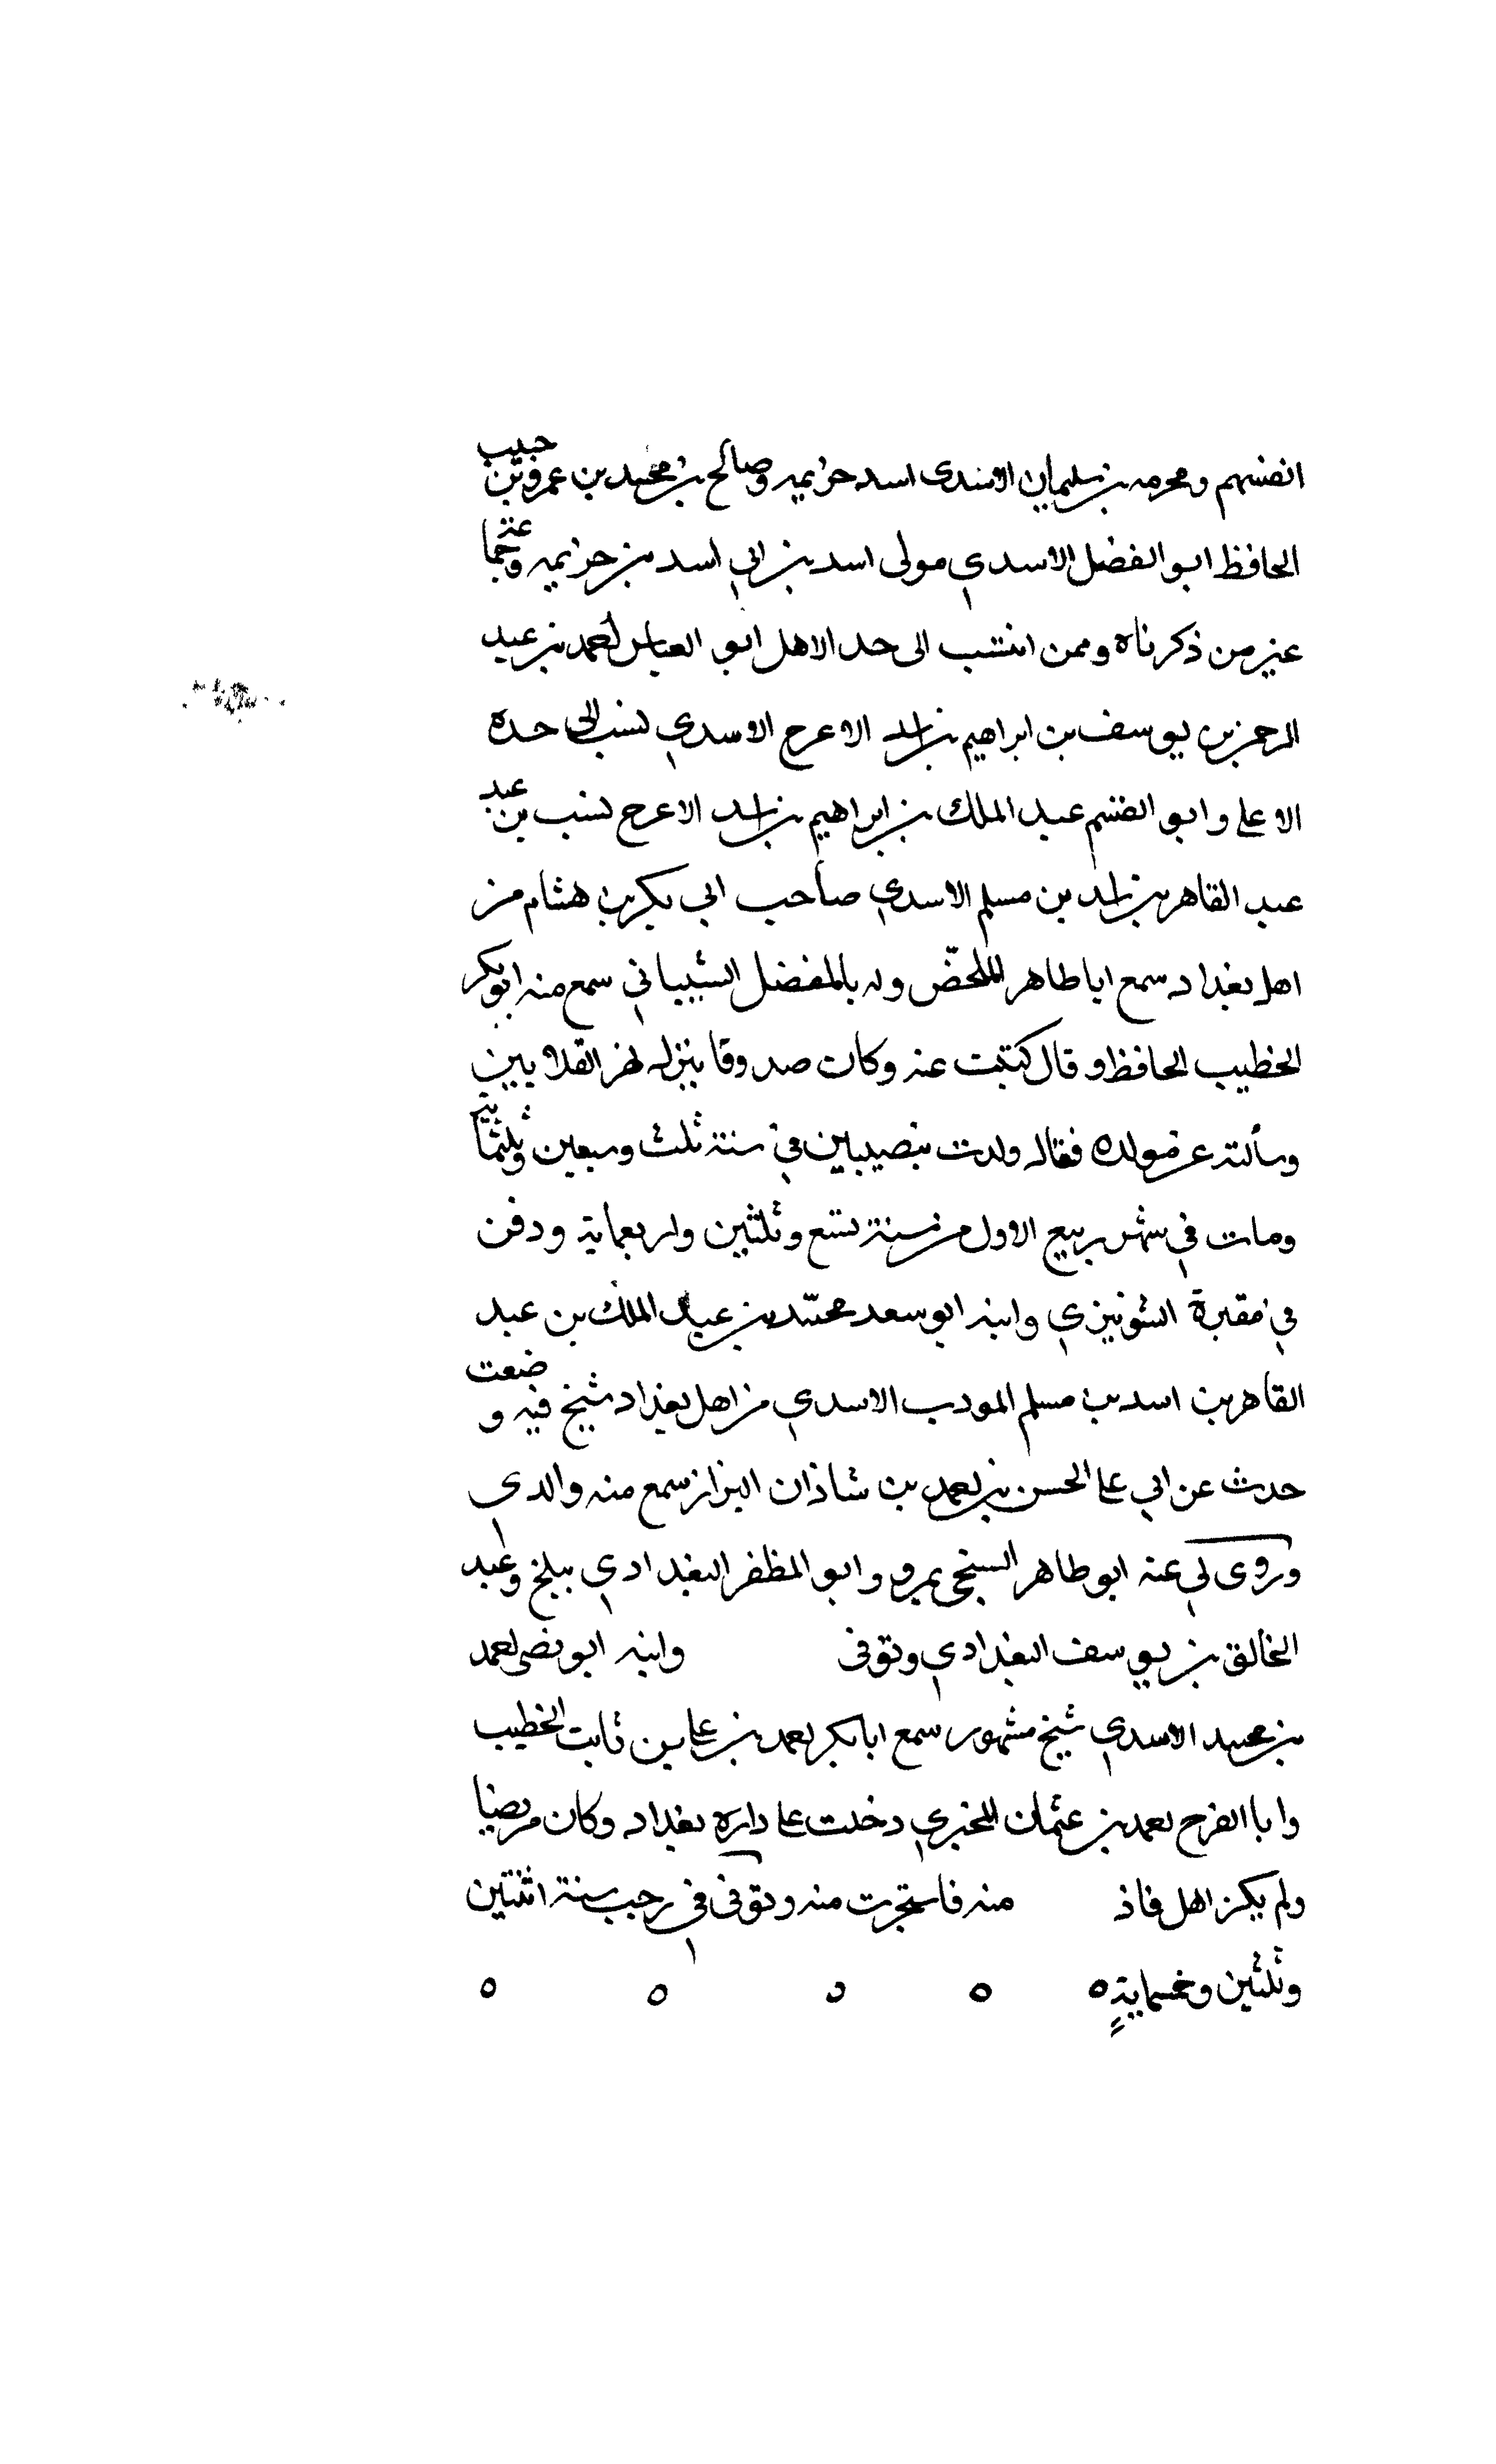 انفسهم ومخرمه بن سليمان الاسدى اسد خزيمه وصالح بن محمد بن عمرو بن حبيب
الحافظ ابو الفضل الاسدي مولى اسد بن ابي اسد بن خزيمه وجماعة
غير من ذكرناه وممن انتسب الى جد الاهل ابو العباس احمد بن عبد
الرحمن بن يوسف بن ابراهيم بن اسد الاعرج الاسدي نسب الى جده
الاعلى وابو القسم عبد الملك بن ابراهيم بن اسد الاعرج نسب بن عبد
عبد القاهر بن اسد بن مسلم الاسدي صاحب ابي بكر بن هشام من
اهل بغداد سمع ابا طاهر المخلص وله بالمفضل الشيباني سمع منه ابو بكر
الخطيب الحافظ و قال كتبت عنه وكان صدوقا ينزل نهر القلايين
وسألته عن مولده فقال ولدت بنصيبين في سنة ثلث وسبعين وثلثماية
ومات في شهر ربيع الاول من سنة تسع وثلثين واربعماية ودفن
في مقبرة الشونيزي وابنه ابو سعد محمد بن عبد الملك بن عبد
القاهر بن اسد بن مسلم المودب الاسدي من اهل بغداد شيخ فيه وضعت
حدث عن ابي على الحسن بن احمد بن شاذان البزاز سمع منه والدي
وروى لي عنه ابو طاهر السنجى بمرو وابو المظفر البغدادي ببلخ وعبد
الخالق بن يوسف البغدادي وتوفى وابنه ابو نصر احمد
بن محمد الاسدي شيخ مشهور سمع ابا بكر احمد بن على بن ثابت الخطيب
وابا الفرج احمد بن عثمان المخبزي دخلت على داره بغداد وكان مريضا
ولم يكن اهل فاذ منه فاستجزت منه وتوفى في رجب سنة اثنتين
وثلثين وخمسماية ه ه ه ه ه